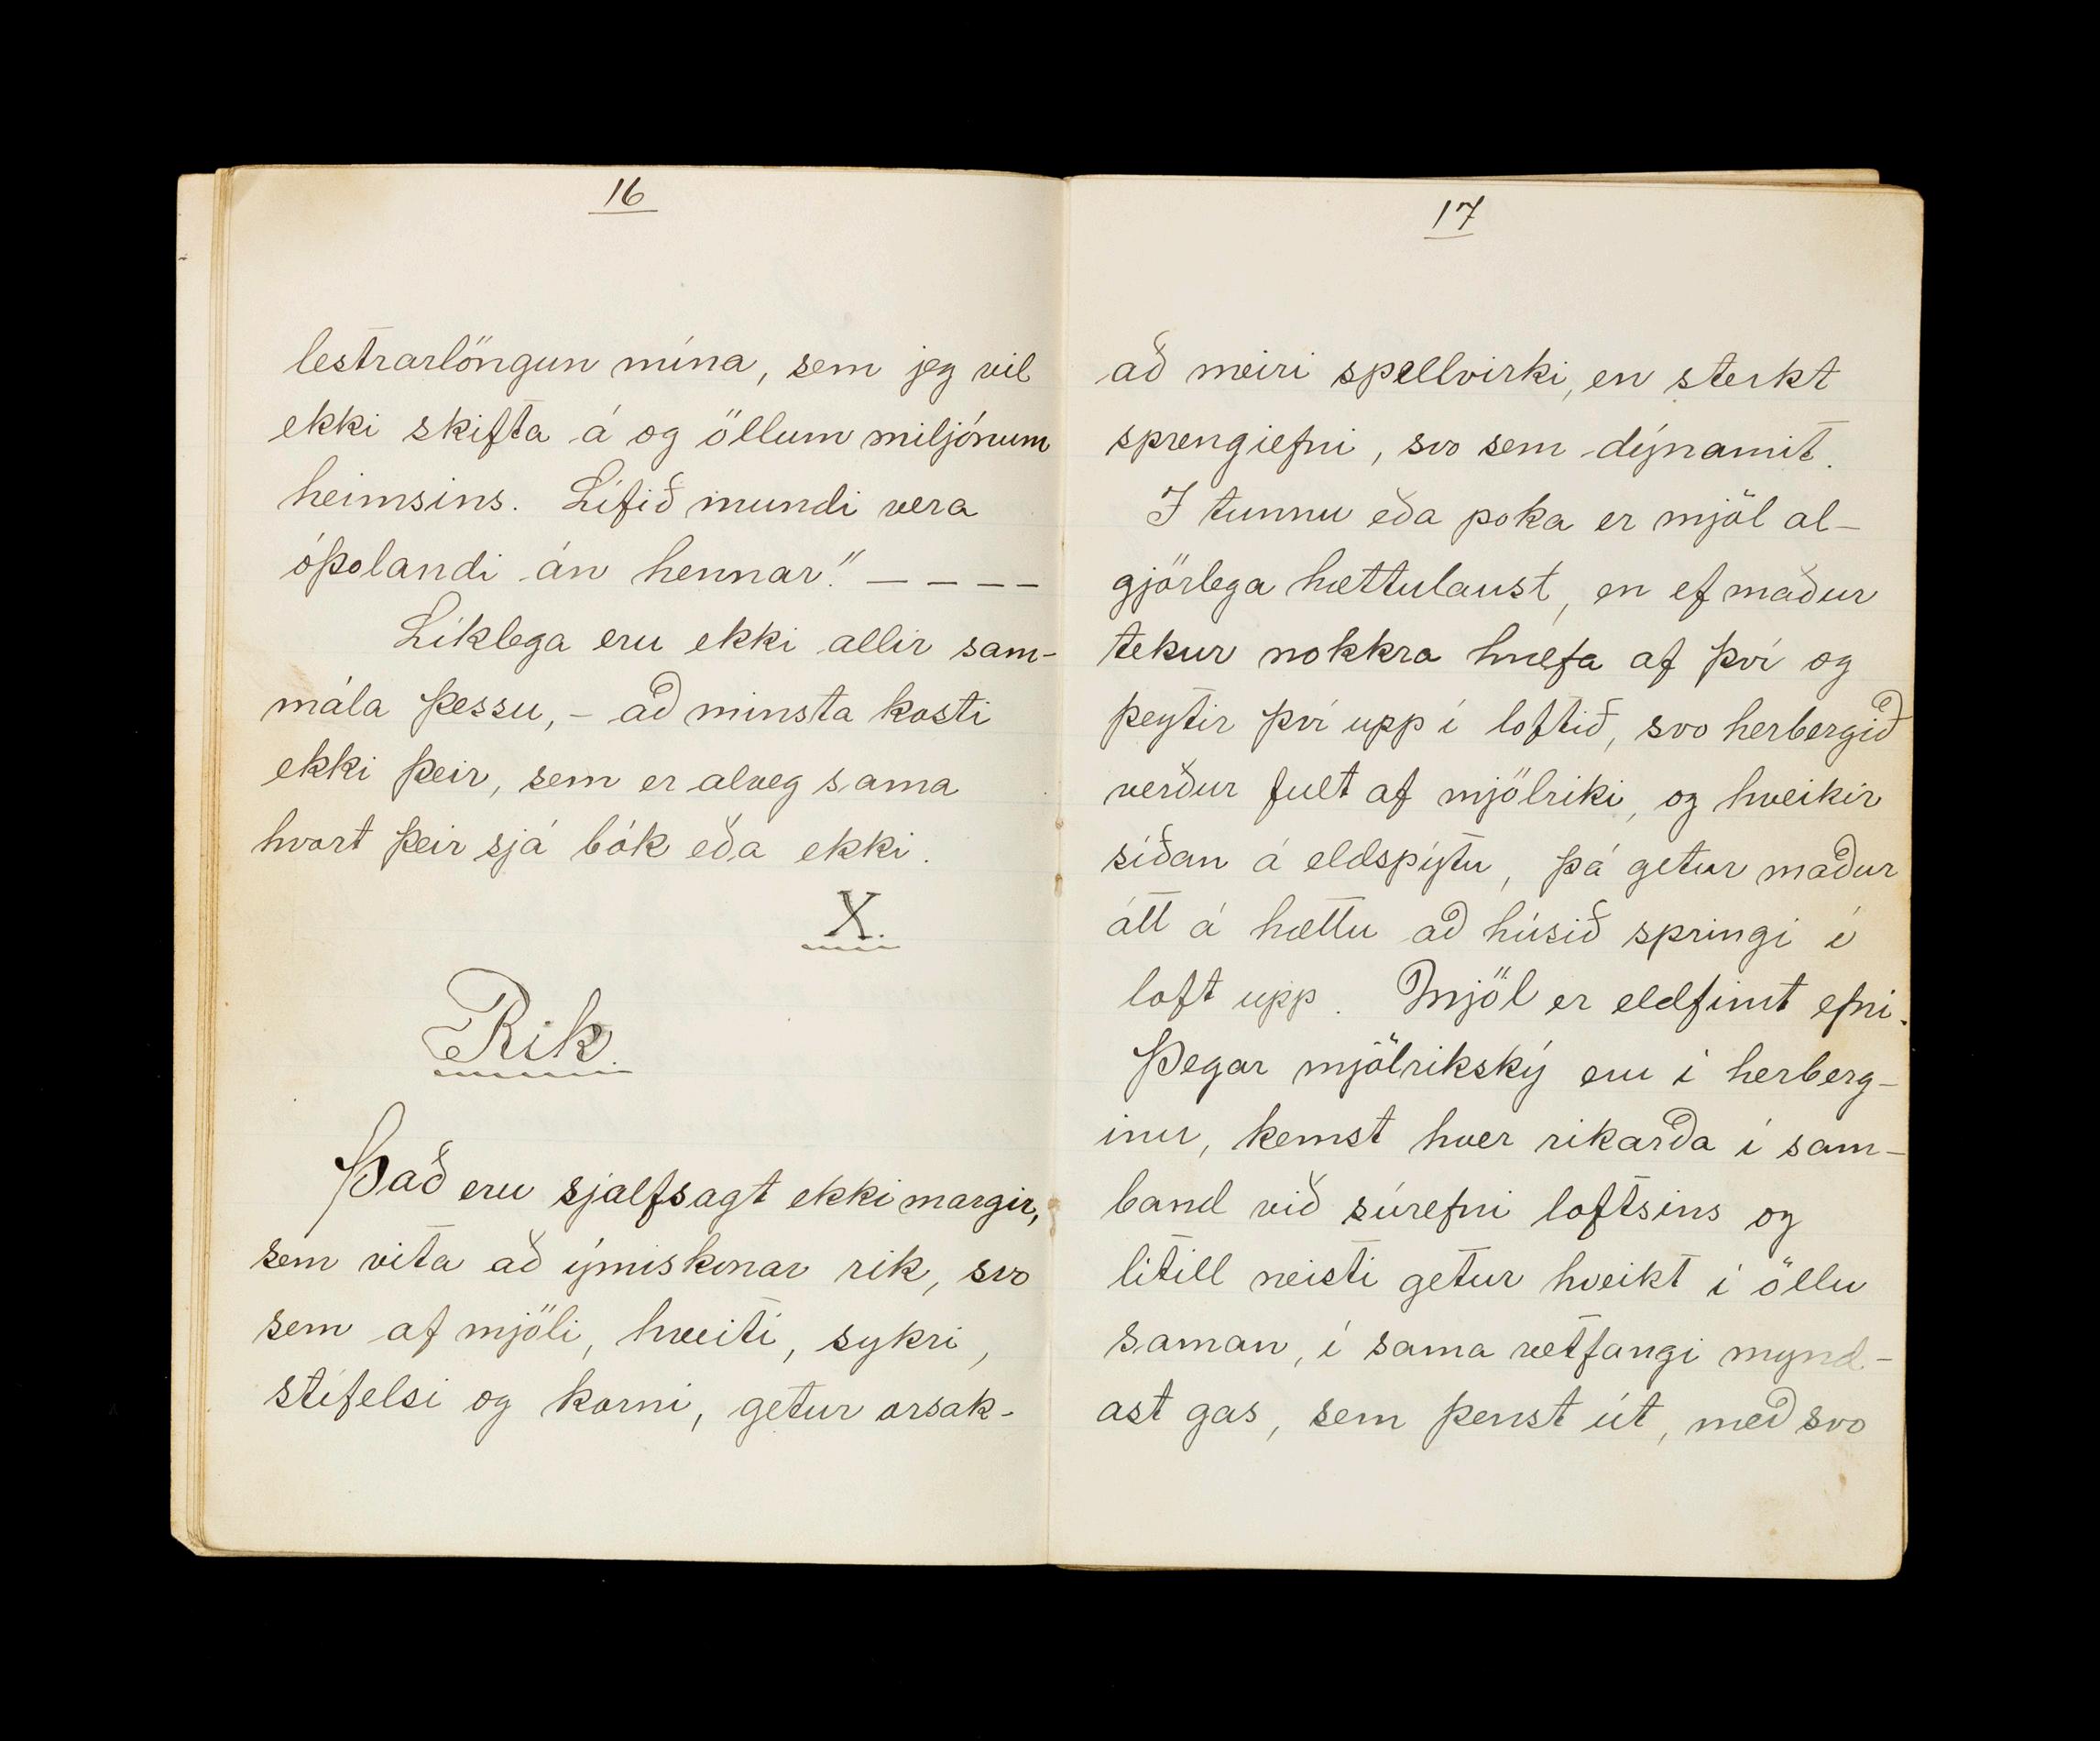 16
lestrarlöngun mína, sem jeg vil
ekki skifta á og öllum miljónum
heimsins. Lífið mundi vera
óþolandi án hennar." – – – –
Líklega eru ekki allir sam-
mála þessu, – að minsta kosti
ekki þeir, sem er alveg sama
hvort þeir sjá bók eða ekki.
X.
Rik.
Það eru sjálfsagt ekki margir,
sem vita að ýmiskonar rik, svo
sem af mjöli, hveiti, sykri,
stífelsi og korni, getur orsak-
17
að meiri spellvirki, en sterkt
sprengiefni, svo sem dýnamit.
I tunnu eða poka er mjöl al-
gjörlega hættulaust, en ef maður
tekur nokkra hnefa af því og
þeytir því upp í loftið, svo herbergið
verður fult af mjölriki, og hveikir
síðan á eldspýtu, þá getur maður
átt á hættu að húsið springi í
loft upp. Mjöl er eldfimt efni.
Þegar mjölrikský eru í herberg-
inu, kemst hver rikarða í sam-
band við súrefni loftsins og
lítill neisti getur hveikt í öllu
saman, í sama vetfangi mynd-
ast gas, sem þenst út, með svo